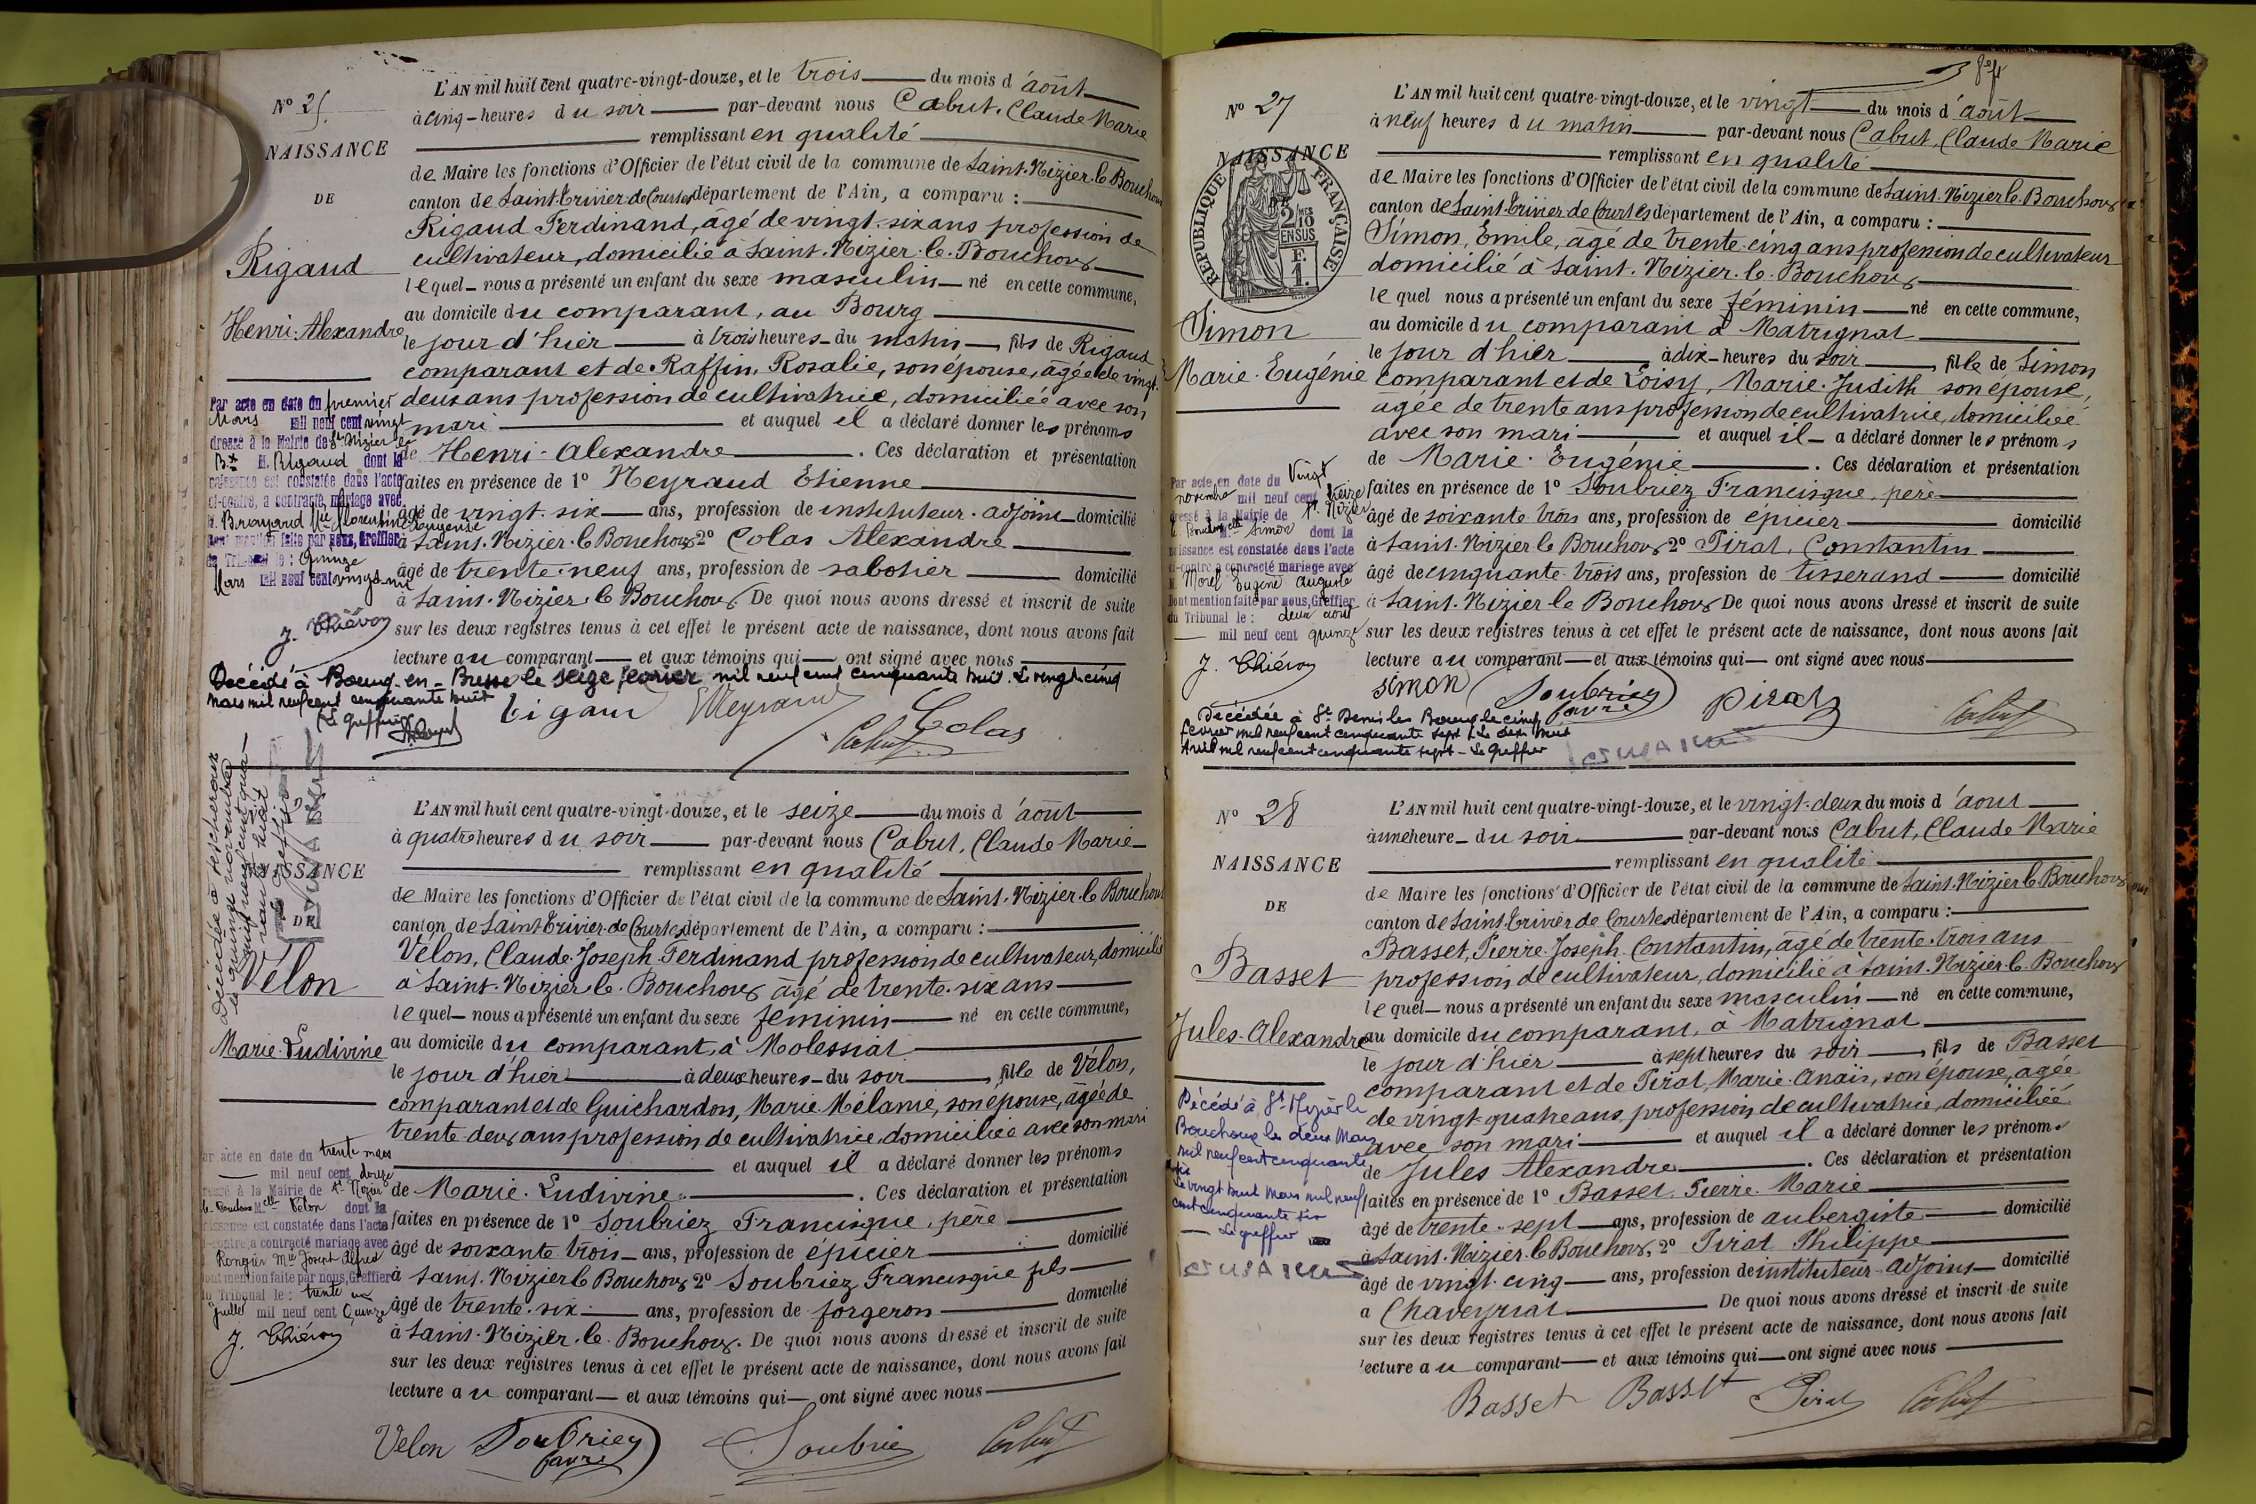 N° 25
NAISSANCE
DE
Rigaud
Henri-Alexandre
L'AN mil huit cent quatre-vingt-douze, et le trois du mois d'août
à cinq heures du soir par-devant nous Cabut, Claude Marie
remplissant en qualité
de Maire les fonctions d'Officier de l'état civil de la commune de Saint-Nizier-le-Bouchoux
canton de Saint-Trivier-de-Courtes département de l'Ain, a comparu :
Rigaud Ferdinand, âgé de vingt-six ans profession de
cultivateur, domicilié à Saint-Nizier-le-Bouchoux
lequel nous a présenté un enfant du sexe masculin né en cette commune,
au domicile du comparant, au Bourg
le jour d'hier à trois heures du matin, fils de Rigaud
comparant et de Raffin, Rosalie, son épouse, âgée de vingt-
deux ans profession de cultivatrice, domiciliée avec son
mari et auquel il a déclaré donner les prénoms
de Henri-Alexandre. Ces déclaration et présentation
faites en présence de 1° Neyraud Etienne
âgé de vingt-six ans, profession de instituteur-adjoint domicilié
à Saint-Nizier-le-Bouchoux 2° Colas Alexandre
âgé de trente-neuf ans, profession de sabotier domicilié
à Saint-Nizier-le-Bouchoux De quoi nous avons dressé et inscrit de suite
sur les deux registres tenus à cet effet le présent acte de naissance, dont nous avons fait
lecture au comparant et aux témoins qui ont signé avec nous
Par acte en date du premier
Mars mil neuf cent vingt
dressé à la Mairie de St Nizier le
Bx M. Rigaud dont la
naissance est constatée dans l'acte
ci-contre, a contracté mariage avec
Mie Florentine Eugénie
Dont mention faite par nous, Greffier
du Tribunal le : Quinze
Mars mil neuf cent vingt
J. Chiévon
Décédé à Bourg-en-Bresse le seize février mil neuf cent cinquante huit. Le vingt cinq
mars mil neuf cent cinquante huit
Le greffier
Rigaud Neyraud Colas
Cabut
NAISSANCE
DE
Vélon
Marie-Ludivine
L'AN mil huit cent quatre-vingt-douze, et le seize du mois d'août
à quatre heures du soir par-devant nous Cabut, Claude Marie
remplissant en qualité
de Maire les fonctions d'Officier de l'état civil de la commune de Saint-Nizier-le-Bouchoux
canton de Saint-Trivier-de-Courtes département de l'Ain, a comparu :
Vélon, Claude-Joseph-Ferdinand profession de cultivateur, domicilié
à Saint-Nizier-le-Bouchoux âgé de trente-six ans
lequel nous a présenté un enfant du sexe féminin né en cette commune,
au domicile du comparant, à Molessiat
le jour d'hier à deux heures du soir, fille de Vélon,
comparant et de Guichardon, Marie-Mélanie, son épouse, âgée de
trente-deux ans profession de cultivatrice, domiciliée avec son mari
et auquel il a déclaré donner les prénoms
de Marie-Ludivine. Ces déclaration et présentation
faites en présence de 1° Soubriez Francisque, père
âgé de soixante trois ans, profession de épicier domicilié
à Saint-Nizier le Bouchoux 2° Soubriez Francisque fils
âgé de trente-six ans, profession de forgeron domicilié
à Saint-Nizier-le-Bouchoux. De quoi nous avons dressé et inscrit de suite
sur les deux registres tenus à cet effet le présent acte de naissance, dont nous avons fait
lecture au comparant et aux témoins qui ont signé avec nous
Par acte en date du trente mars
mil neuf cent douze
dressé à la Mairie de St Nizier
le Bouchoux Melle Vélon dont la
naissance est constatée dans l'acte
ci-contre, a contracté mariage avec
Mie Joseph Alfred
Dont mention faite par nous, Greffier
du Tribunal le : trente un
Juillet mil neuf cent Quinze
J. Chiévon
Velon Soubriez Soubriez Cabut
N° 27
NAISSANCE
REPUBLIQUE FRANÇAISE
2/10 EN SUS
Simon
Marie-Eugénie
L'AN mil huit cent quatre-vingt-douze, et le vingt du mois d'août
à neuf heures du matin par-devant nous Cabut, Claude Marie
remplissant en qualité
de Maire les fonctions d'Officier de l'état civil de la commune de Saint-Nizier-le-Bouchoux
canton de Saint-Trivier-de-Courtes département de l'Ain, a comparu :
Simon, Emile, âgé de trente-cinq ans profession de cultivateur
domicilié à Saint-Nizier-le-Bouchoux
lequel nous a présenté un enfant du sexe féminin né en cette commune,
au domicile du comparant à Matrignat
le jour d'hier à dix heures du soir, fille de Simon
comparant et de Loisy, Marie-Judith son épouse,
âgée de trente ans profession de cultivatrice, domiciliée
avec son mari et auquel il a déclaré donner les prénoms
de Marie-Eugénie. Ces déclaration et présentation
faites en présence de 1° Soubriez Francisque, père
âgé de soixante trois ans, profession de épicier domicilié
à Saint-Nizier le Bouchoux 2° Pirat, Constantin
âgé de cinquante-trois ans, profession de tisserand domicilié
à Saint-Nizier-le-Bouchoux De quoi nous avons dressé et inscrit de suite
sur les deux registres tenus à cet effet le présent acte de naissance, dont nous avons fait
lecture au comparant et aux témoins qui ont signé avec nous
Par acte en date du Vingt
novembre mil neuf cent treize
dressé à la Mairie de St Nizier
le Bouchoux Melle Simon dont la
naissance est constatée dans l'acte
ci-contre a contracté mariage avec
M. Morel Eugène Auguste
Dont mention faite par nous, Greffier
du Tribunal le : deux août
mil neuf cent quinze
J. Chiévon
Simon Soubriez Pirat Cabut
Décédée à St Denis les Bourg le cinq
février mil neuf cent cinquante sept. Le dix huit
Avril mil neuf cent cinquante sept - Le Greffier
N° 28
NAISSANCE
DE
Basset
Jules-Alexandre
L'AN mil huit cent quatre-vingt-douze, et le vingt-deux du mois d'août
à une heure du soir par-devant nous Cabut, Claude Marie
remplissant en qualité
de Maire les fonctions d'Officier de l'état civil de la commune de Saint-Nizier-le-Bouchoux
canton de Saint-Trivier-de-Courtes département de l'Ain, a comparu :
Basset, Pierre-Joseph-Constantin, âgé de trente-trois ans
profession de cultivateur, domicilié à Saint-Nizier-le-Bouchoux
lequel nous a présenté un enfant du sexe masculin né en cette commune,
au domicile du comparant, à Matrignat
le jour d'hier à sept heures du soir, fils de Basset
comparant et de Pirat, Marie-Anaïs, son épouse, âgée
de vingt-quatre ans profession de cultivatrice, domiciliée
avec son mari et auquel il a déclaré donner les prénoms
de Jules Alexandre. Ces déclaration et présentation
faites en présence de 1° Basset, Pierre-Marie
âgé de trente-sept ans, profession de aubergiste domicilié
à Saint-Nizier-le-Bouchoux, 2° Pirat Philippe
âgé de vingt-cinq ans, profession de instituteur-adjoint domicilié
à Chaveyriat De quoi nous avons dressé et inscrit de suite
sur les deux registres tenus à cet effet le présent acte de naissance, dont nous avons fait
lecture au comparant et aux témoins qui ont signé avec nous
Décédé à St Nizier le
Bouchoux le deux Mars
mil neuf cent cinquante
six
Le vingt huit Mars mil neuf
cent cinquante six
Le greffier
Basset Basset Pirat Cabut